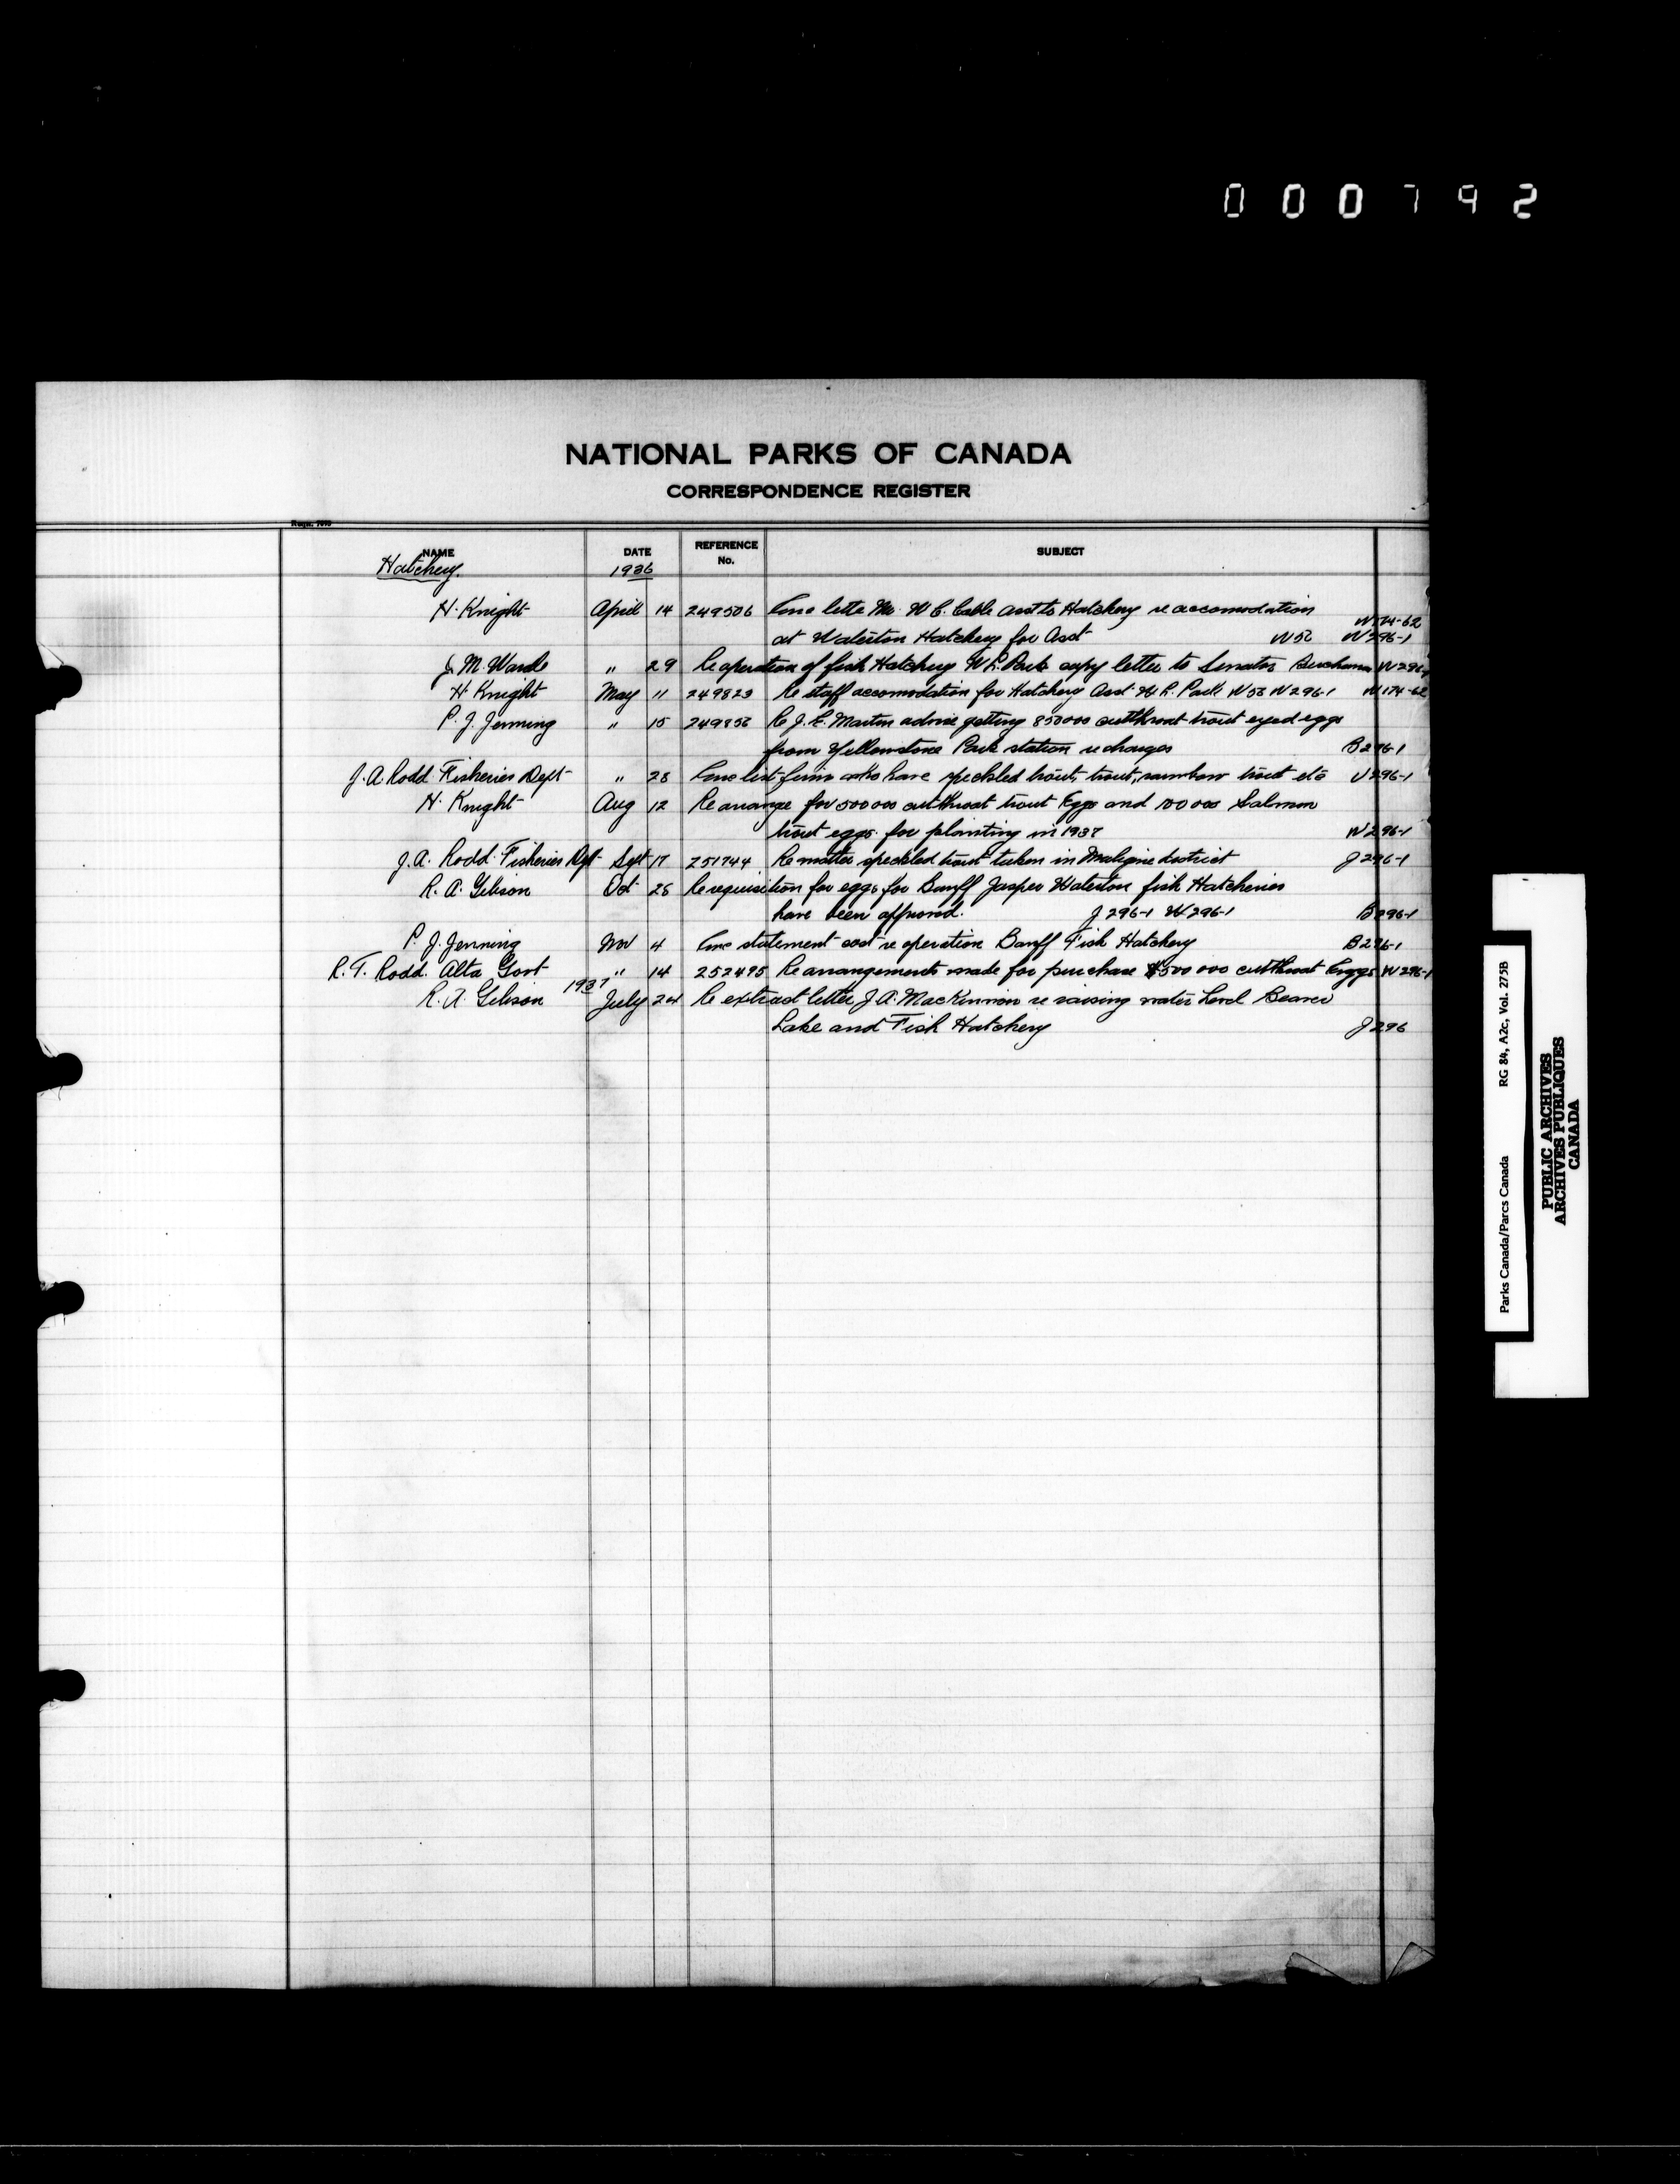 000792
NATIONAL PARKS OF CANADA
CORRESPONDENCE REGISTER
NAME DATE REFERENCE No. SUBJECT
Hatchery. 1936
H. Knight April 14 249506 Enc lette Mr. W.C. Cable asst to Hatchery re accomodation W174-62
at Waterton Hatchery for Asst W56 W296-1
J.M. Wardle " 29 Re operation of fish Hatchery W.L. Park copy letter to Senator Buchanan W296-1
H Knight May 11 249823 Re staff accomodation for Hatchery Asst. W.L. Park W56 W296-1 W174-62
P.J. Jenning " 15 249856 Re J.E. Martin advise getting 850000 cutthroat trout eyed eggs
from Yellowstone Park station re charges B296-1
J.A. Rodd Fisheries Dept " 28 Enc list firms who have speckled trout, trout, rainbow trout etc U296-1
H. Knight Aug 12 Re arrange for 500000 cutthroat trout Eggs and 100000 Salmon
trout eggs for planting in 1937 W296-1
J.A. Rodd Fisheries Dpt Sept 17 251744 Re matter speckled trout taken in Maligne district J296-1
R.A. Gibson Oct 28 Re requisition for eggs for Banff Jasper Waterton fish Hatcheries
have been approved. J296-1 W296-1 B296-1
P.J. Jenning Nov 4 Enc statement cost re operation Banff Fish Hatchery B296-1
R.T. Rodd. Alta Govt " 14 252495 Re arrangements made for purchase 500000 cutthroat Eggs W296-1
1937
R.A. Gibson July 24 Re extract letter J.A. MacKinnon re raising water Level Beaver
Lake and Fish Hatchery J296
Parks Canada/Parcs Canada RG 84, A2c, Vol. 275B
PUBLIC ARCHIVES
ARCHIVES PUBLIQUES
CANADA